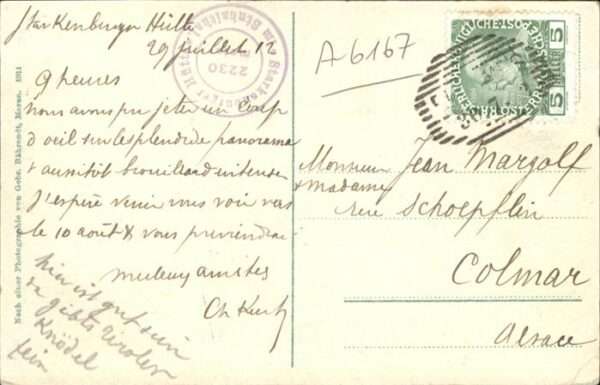 Starkenburger Hütte
29 juillet 12
9 heures
nous avons pu jeter un coup
d'oeil sur le splendide panorama
et aussitôt brouillard intense
J'espère venir vous voir vers
le 10 août & vous préviendrai
meilleures amitiés
Ch Kurtz
hier ist gut sein
da gibts Tiroler
Knödel
fein
Starkenburger Hütte
im Stubaithal
2230
A6167
5 5
Monsieur Jean Margolf
& madame
rue Schoepflin
Colmar
Alsace
Nach einer Photographie von Gebr. Bährendt, Meran. 1911